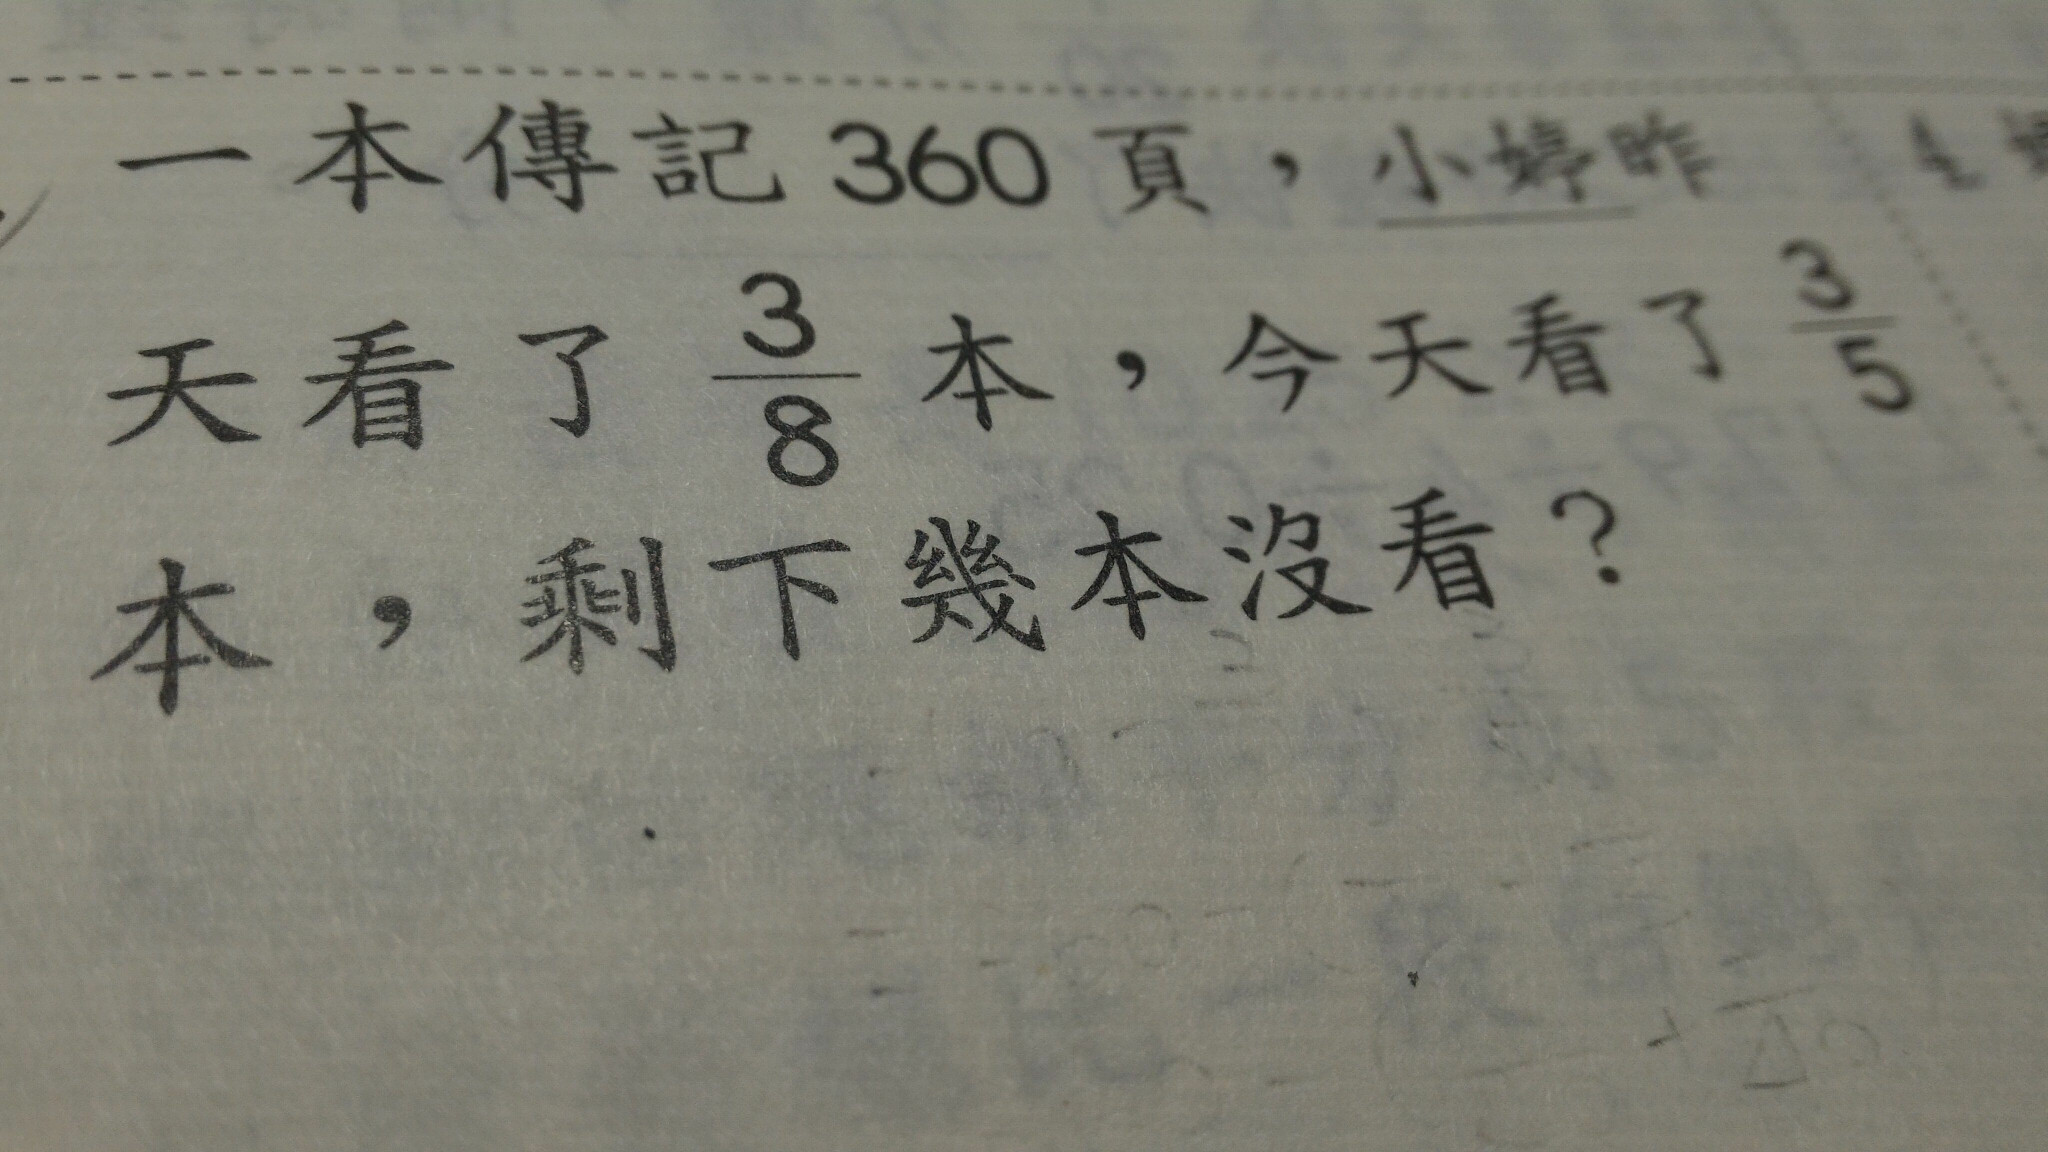 一本傳記 360 頁，小婷昨
天看了 3/8 本，今天看了 3/5
本，剩下幾本沒看？